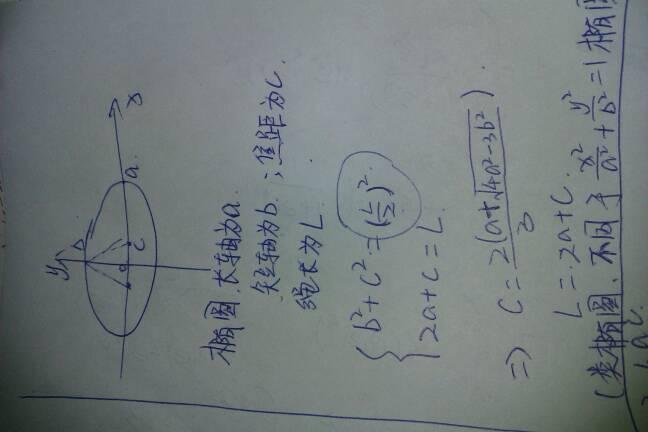 y
b
x
a
o
c
椭圆.长轴为a.
短轴为b.;焦距为c.
绳长为L.
b²+c²=(L/2)².
2a+c=L.
⇒ C=2(a+√4a²-3b²)/3.
L=2a+c.
(类椭圆.不同于x²/a²+y²/b²=1椭圆